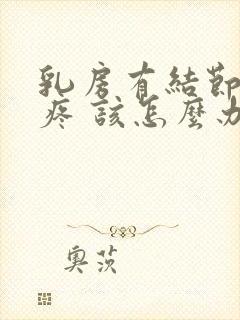 乳房有結節
疼 該怎麼办
奥茨